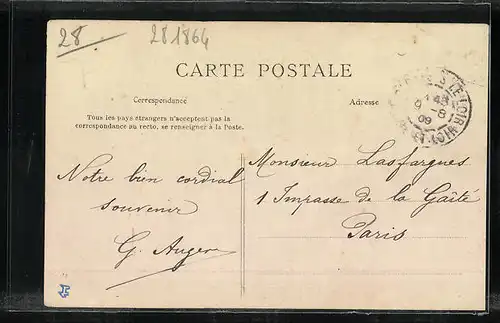 28
281864
CARTE POSTALE
Correspondance
Adresse
Tous les pays étrangers n'acceptent pas la
correspondance au recto, se renseigner à la Poste.
9 8
09
Notre bien cordial
souvenir
G. Auger
Monsieur Lasfargues
1 Impasse de la Gaîté
Paris